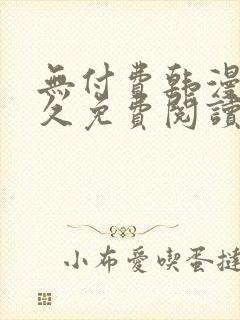 無付費韓漫
久免費閱讀
小布愛喫蛋撻